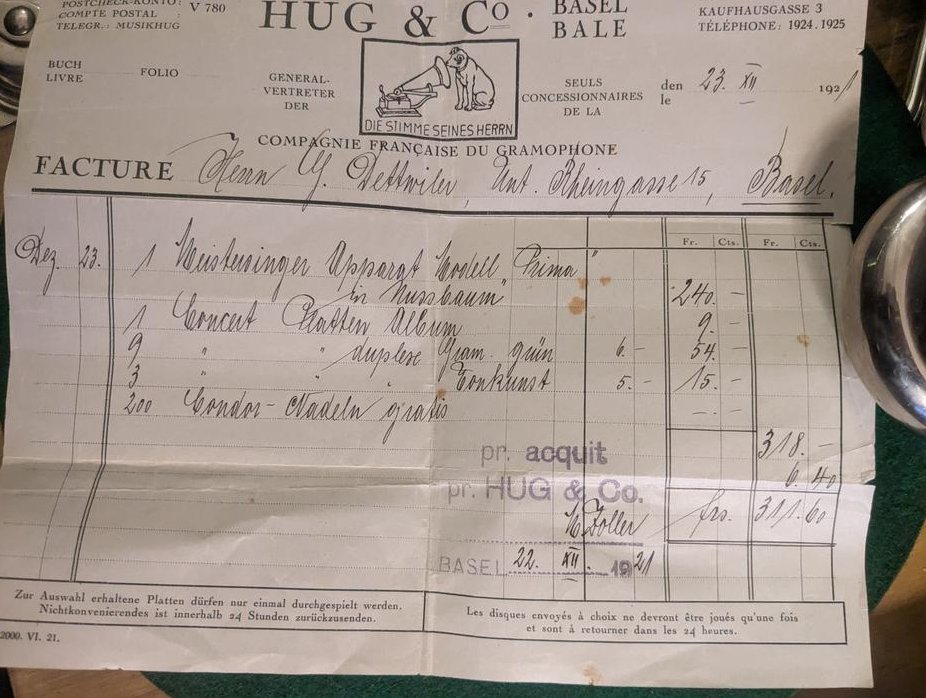 POSTCHECK-KONTO: V 780
COMPTE POSTAL :
TELEGR.: MUSIKHUG
HUG & Co · BASEL
BALE
KAUFHAUSGASSE 3
TÉLÉPHONE: 1924.1925
BUCH
LIVRE
FOLIO
GENERAL-
VERTRETER
DER
DIE STIMME SEINES HERRN
SEULS
CONCESSIONNAIRES
DE LA
den 23. XII 1921
le
COMPAGNIE FRANÇAISE DU GRAMOPHONE
FACTURE Herrn G. Dettwiler, Unt. Rheingasse 15, Basel.
Fr. Cts. Fr. Cts.
Dez. 23. 1 Meistersinger Apparat Modell "Prima"
in Nussbaum" 240. -
1 Concert Platten Album 9. -
9 " " duplexe Gram. grün 6. - 54. -
3 " " " Tonkunst 5. - 15. -
200 Condor-Nadeln gratis -. -
318. -
6. 40
pr. acquit
pr. HUG & Co.
M Zoller frs. 311.60
BASEL 22. XII. 1921
Zur Auswahl erhaltene Platten dürfen nur einmal durchgespielt werden.
Nichtkonvenierendes ist innerhalb 24 Stunden zurückzusenden.
Les disques envoyés à choix ne devront être joués qu'une fois
et sont à retourner dans les 24 heures.
2000. VI. 21.